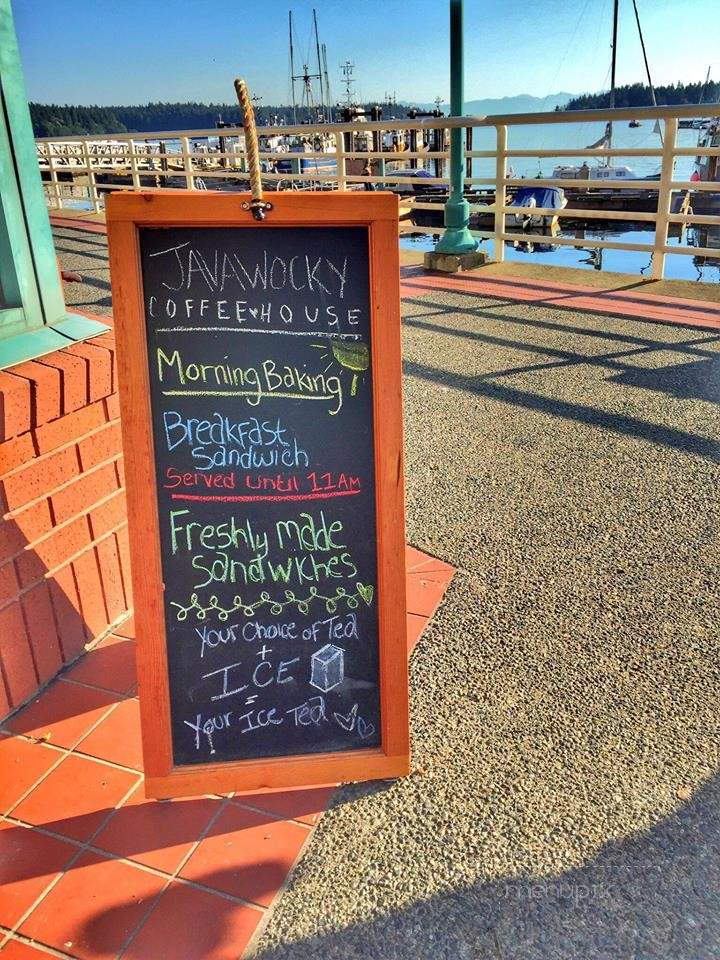 JAVAWOCKY
COFFEE♥HOUSE
Morning Baking
Breakfast
Sandwich
Served until 11AM
Freshly made
sandwiches
Your Choice of Tea
+
ICE
=
Your Ice Tea
menupix